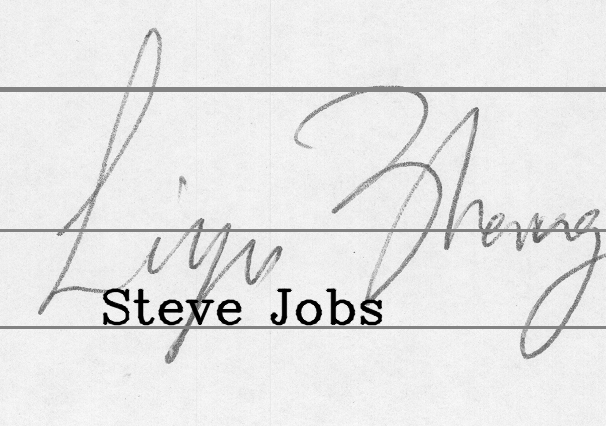 Liyu Zheng
Steve Jobs